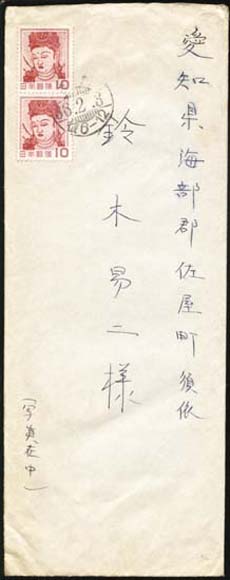 愛知県海部郡佐屋町須依
鈴木易二様
(写真在中)
10
日本郵便
10
日本郵便
36.2.3